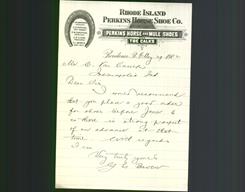 RHODE ISLAND
PERKINS HORSE SHOE CO.
PERKINS HORSE AND MULE SHOES
TOE CALKS
Providence R.I.
Mr. C.
Indianapolis Ind
Dear Sir
I would recommend
that you place a good order
for shoes before June 1
as there is strong prospect
of an advance at that
time. With regards
I am
Very truly yours